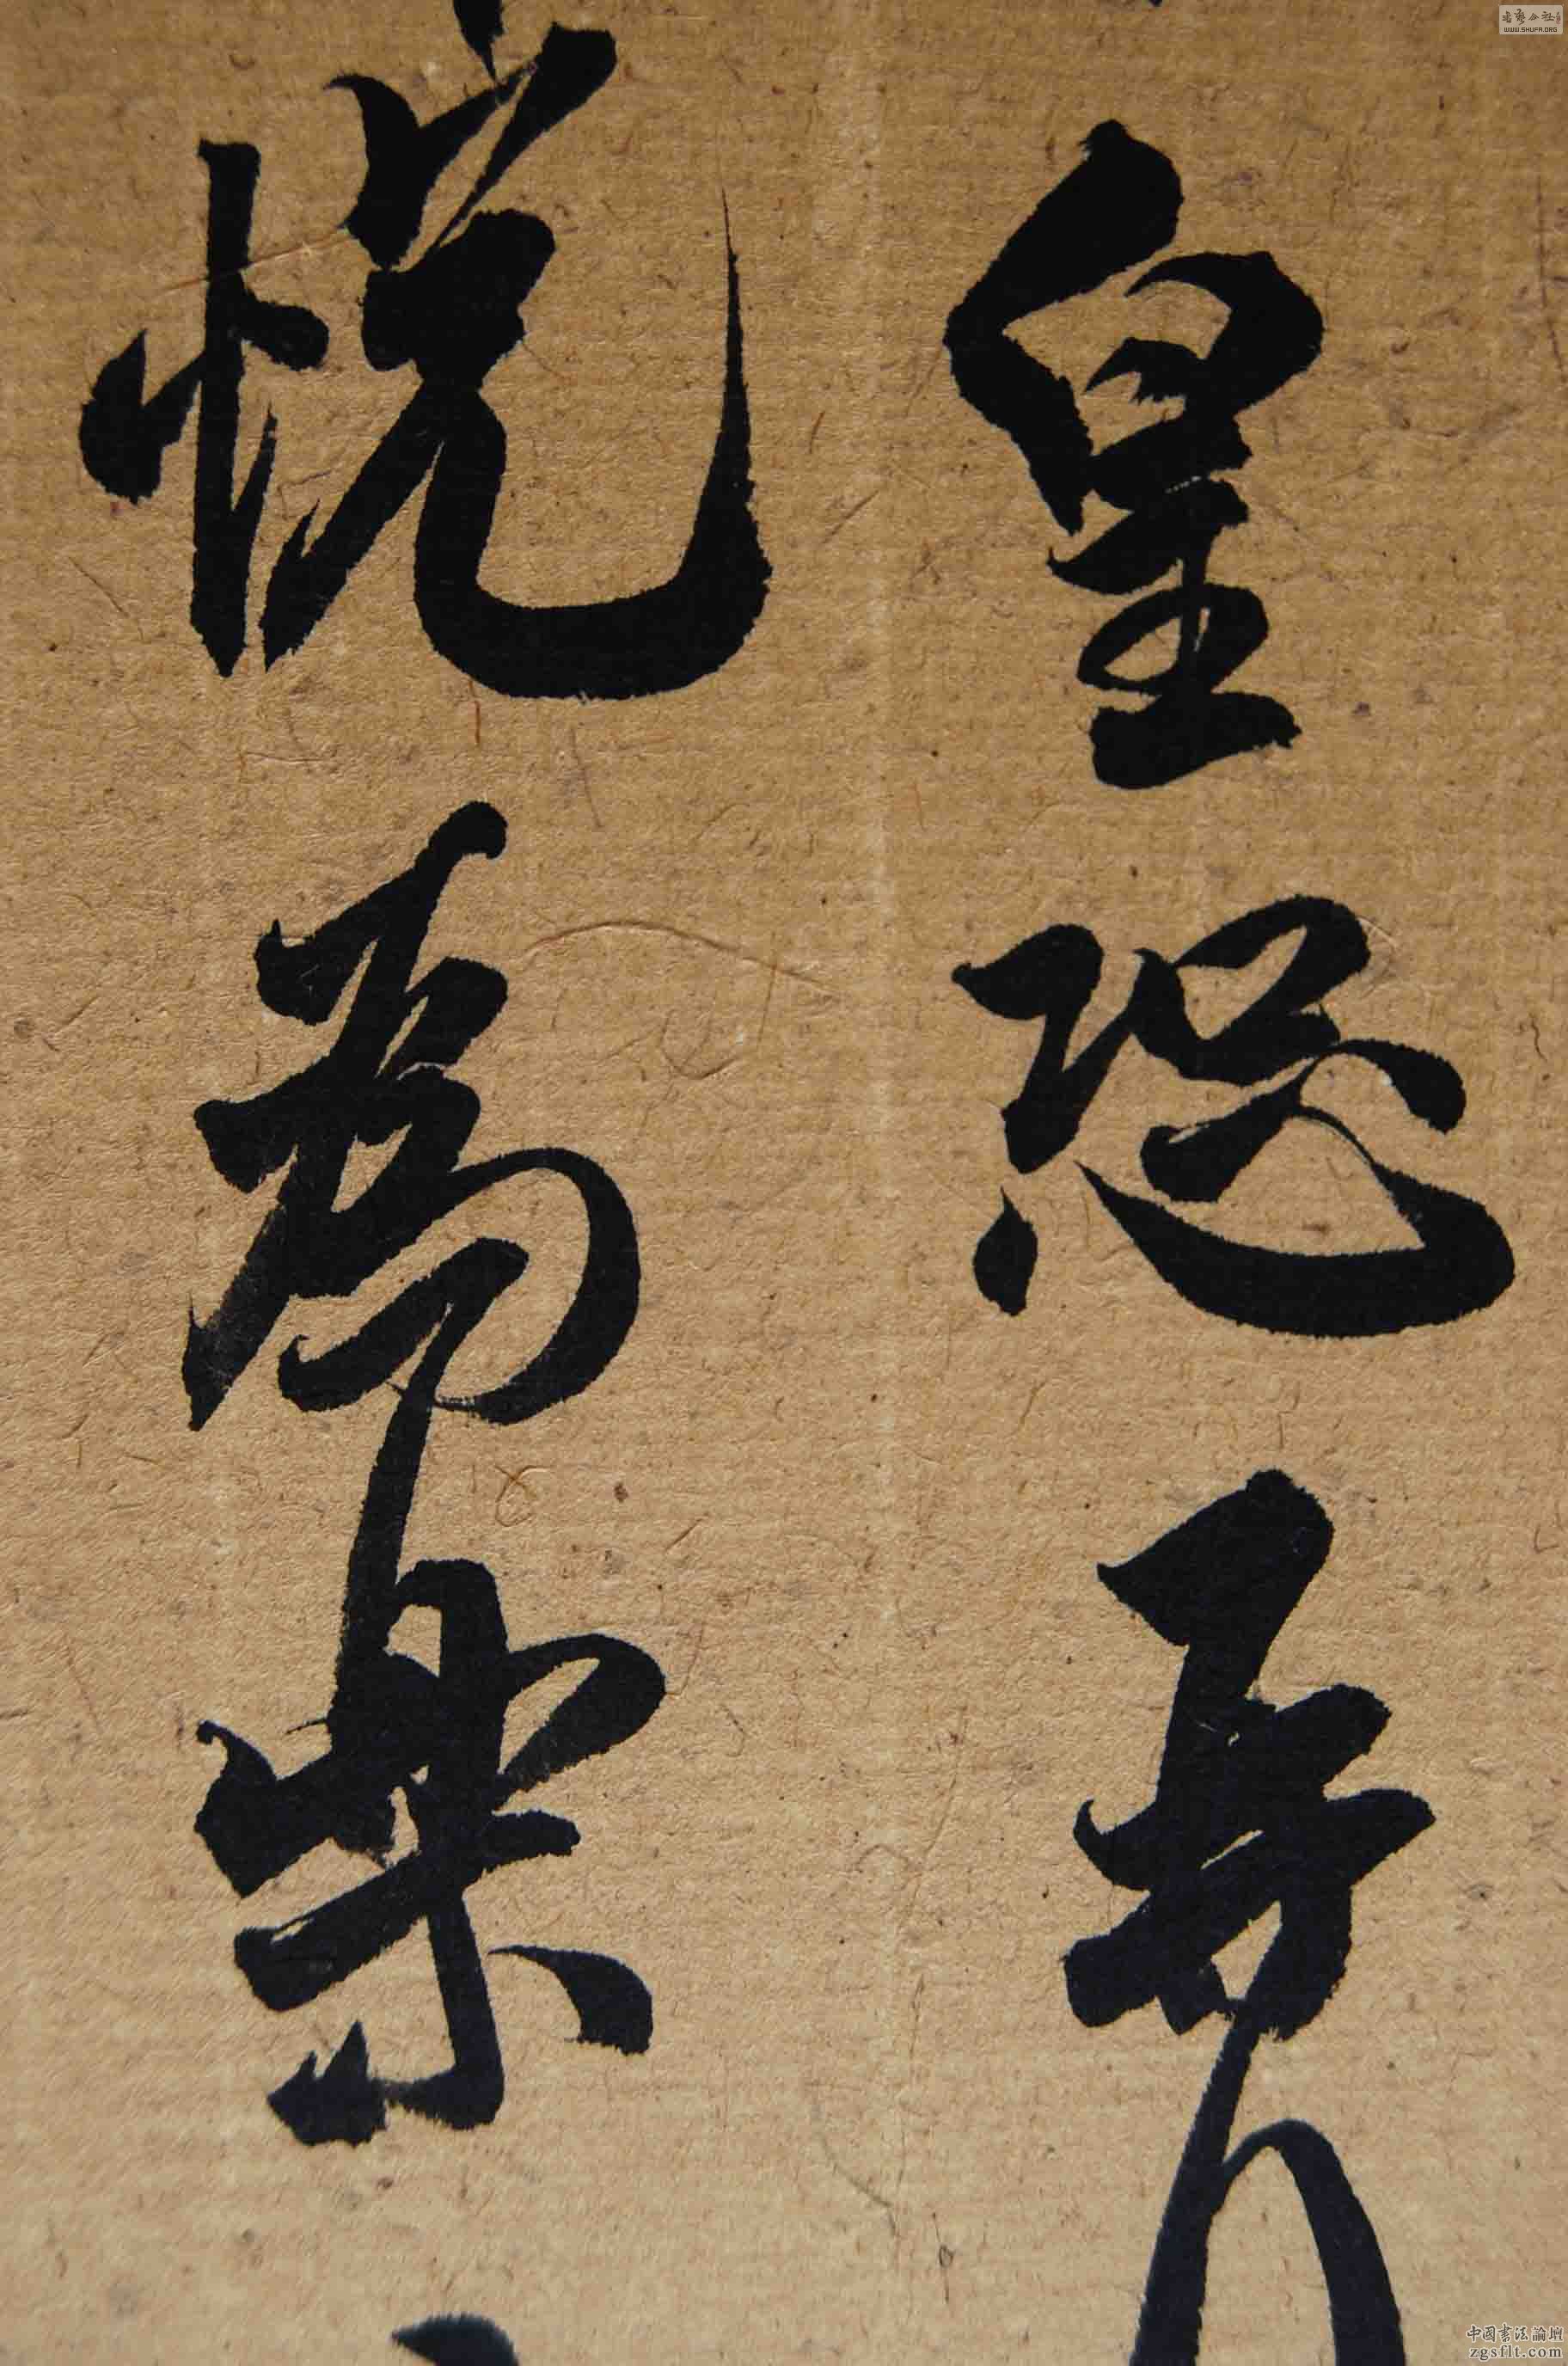 皇恐
悦為樂
書藝公社
WWW.SHUFA.ORG
中國書法論壇
zgsflt.com